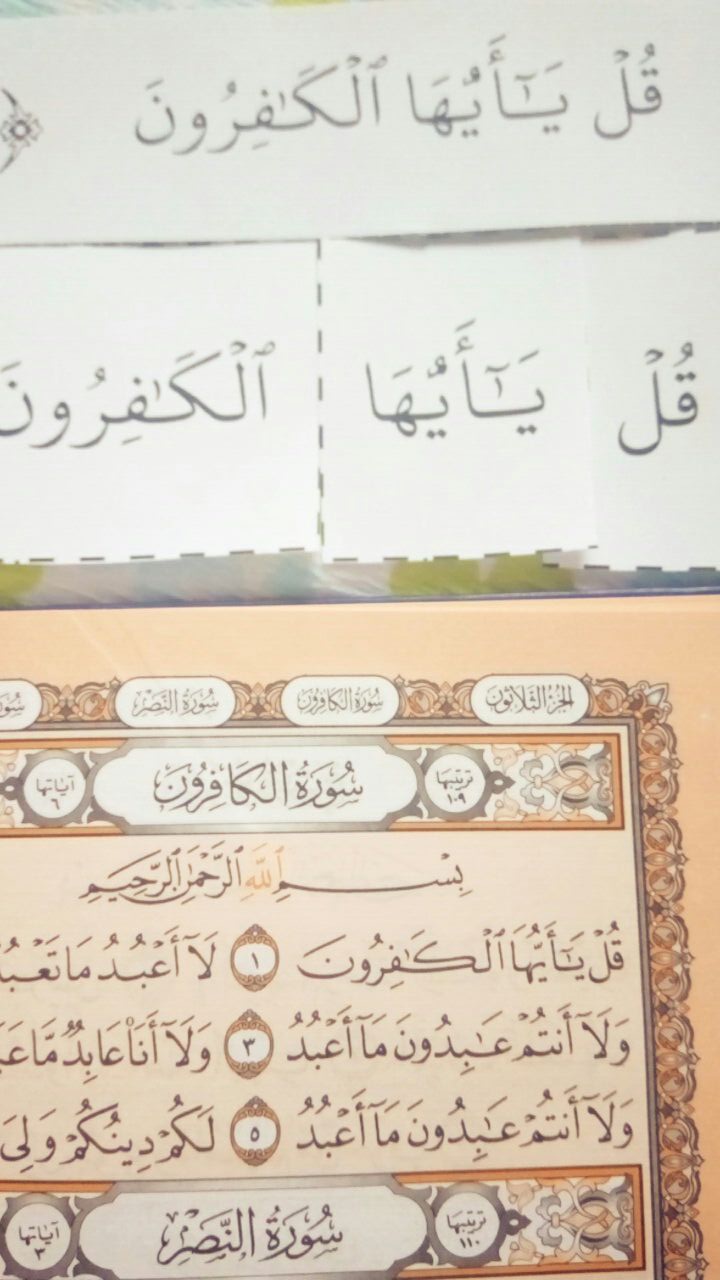 قُلْ يَٰٓأَيُّهَا ٱلْكَٰفِرُونَ
قُلْ يَٰٓأَيُّهَا ٱلْكَٰفِرُونَ
الجُزْءُ الثَّلَاثُونَ سُورَةُ الكَافِرُونَ سُورَةُ النَّصْرِ
تَرتيبُهَا ١٠٩ سُورَةُ الكَافِرُونَ آيَاتُهَا ٦
بِسْمِ ٱللَّهِ ٱلرَّحْمَٰنِ ٱلرَّحِيمِ
قُلْ يَٰٓأَيُّهَا ٱلْكَٰفِرُونَ ١ لَآ أَعْبُدُ مَا
وَلَآ أَنتُمْ عَٰبِدُونَ مَآ أَعْبُدُ ٣ وَلَآ أَنَا۠ عَابِدٌ مَّا
وَلَآ أَنتُمْ عَٰبِدُونَ مَآ أَعْبُدُ ٥ لَكُمْ دِينُكُمْ وَلِىَ
تَرتيبُهَا ١١٠ سُورَةُ النَّصْرِ آيَاتُهَا ٣